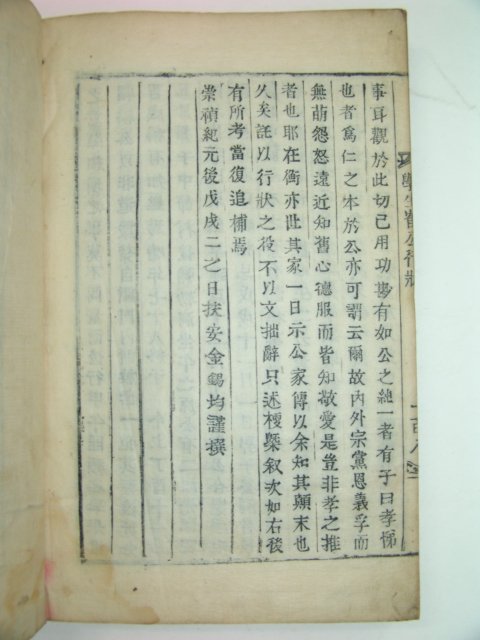 事耳觀於此切己用功尠有如公之純一者有子曰孝悌
也者爲仁之本於公亦可謂云爾故內外宗黨恩義孚而
無萌怨怒遠近知舊心德服而皆知敬愛是豈非孝之推
者也耶在衡亦世其家一日示公家傳以余知其顚末也
久矣託以行狀之役不以文拙辭只述梗槩敍次如右後
有所考當復追補焉
崇禎紀元後戊戌二之日扶安金錫均謹撰